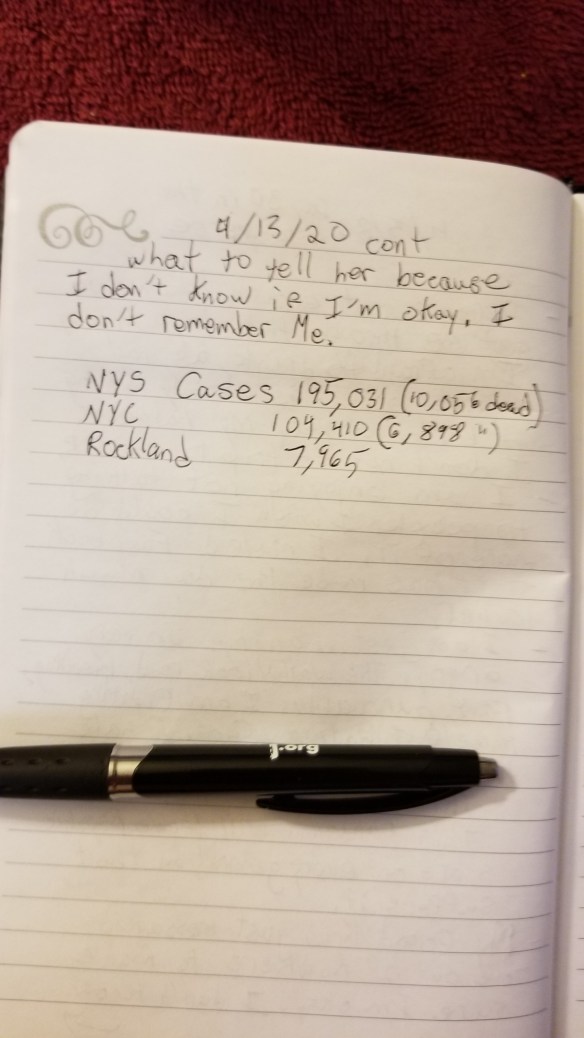 4/13/20 cont
what to tell her because
I don't know ie I'm okay. I
don't remember Me.
NYS Cases 195,031 (10,056 dead)
NYC 104,410 (6,898 ")
Rockland 7,965
.org